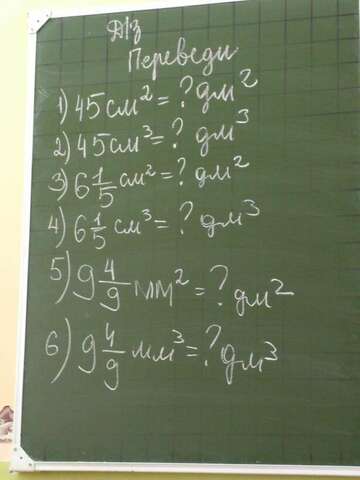 Д/З
Переведи
1) 45 см² = ? дм²
2) 45 см³ = ? дм³
3) 6 1/5 см² = ? дм²
4) 6 1/5 см³ = ? дм³
5) 9 4/9 мм² = ? дм²
6) 9 4/9 мм³ = ? дм³